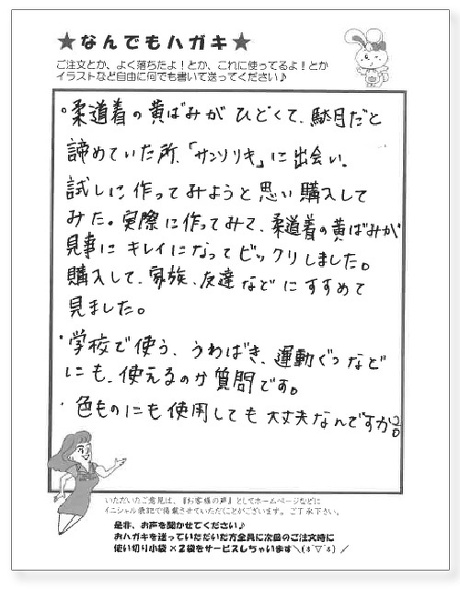 ★なんでもハガキ★
ご注文とか、よく落ちたよ！とか、これに使ってるよ！とか
イラストなど自由に何でも書いて送ってください♪
・柔道着の黄ばみがひどくて、駄目だと
諦めていた所、「サンソリキ」に出会い、
試しに作ってみようと思い購入して
みた。実際に作ってみて、柔道着の黄ばみが
見事にキレイになってビックリしました。
購入して、家族、友達などにすすめて
見ました。
・学校で使う、うわばき、運動ぐつなど
にも、使えるのか質問です。
・色ものにも使用しても大丈夫なんですか
いただいたご意見は、『お客様の声』としてホームページなどに
イニシャル表記で掲載させていただくことがございます。ご了承下さい。
是非、お声を聞かせてください♪
おハガキを送っていただいた方全員に次回のご注文時に
使い切り小袋×2袋をサービスしちゃいます＼(*´▽`*)／